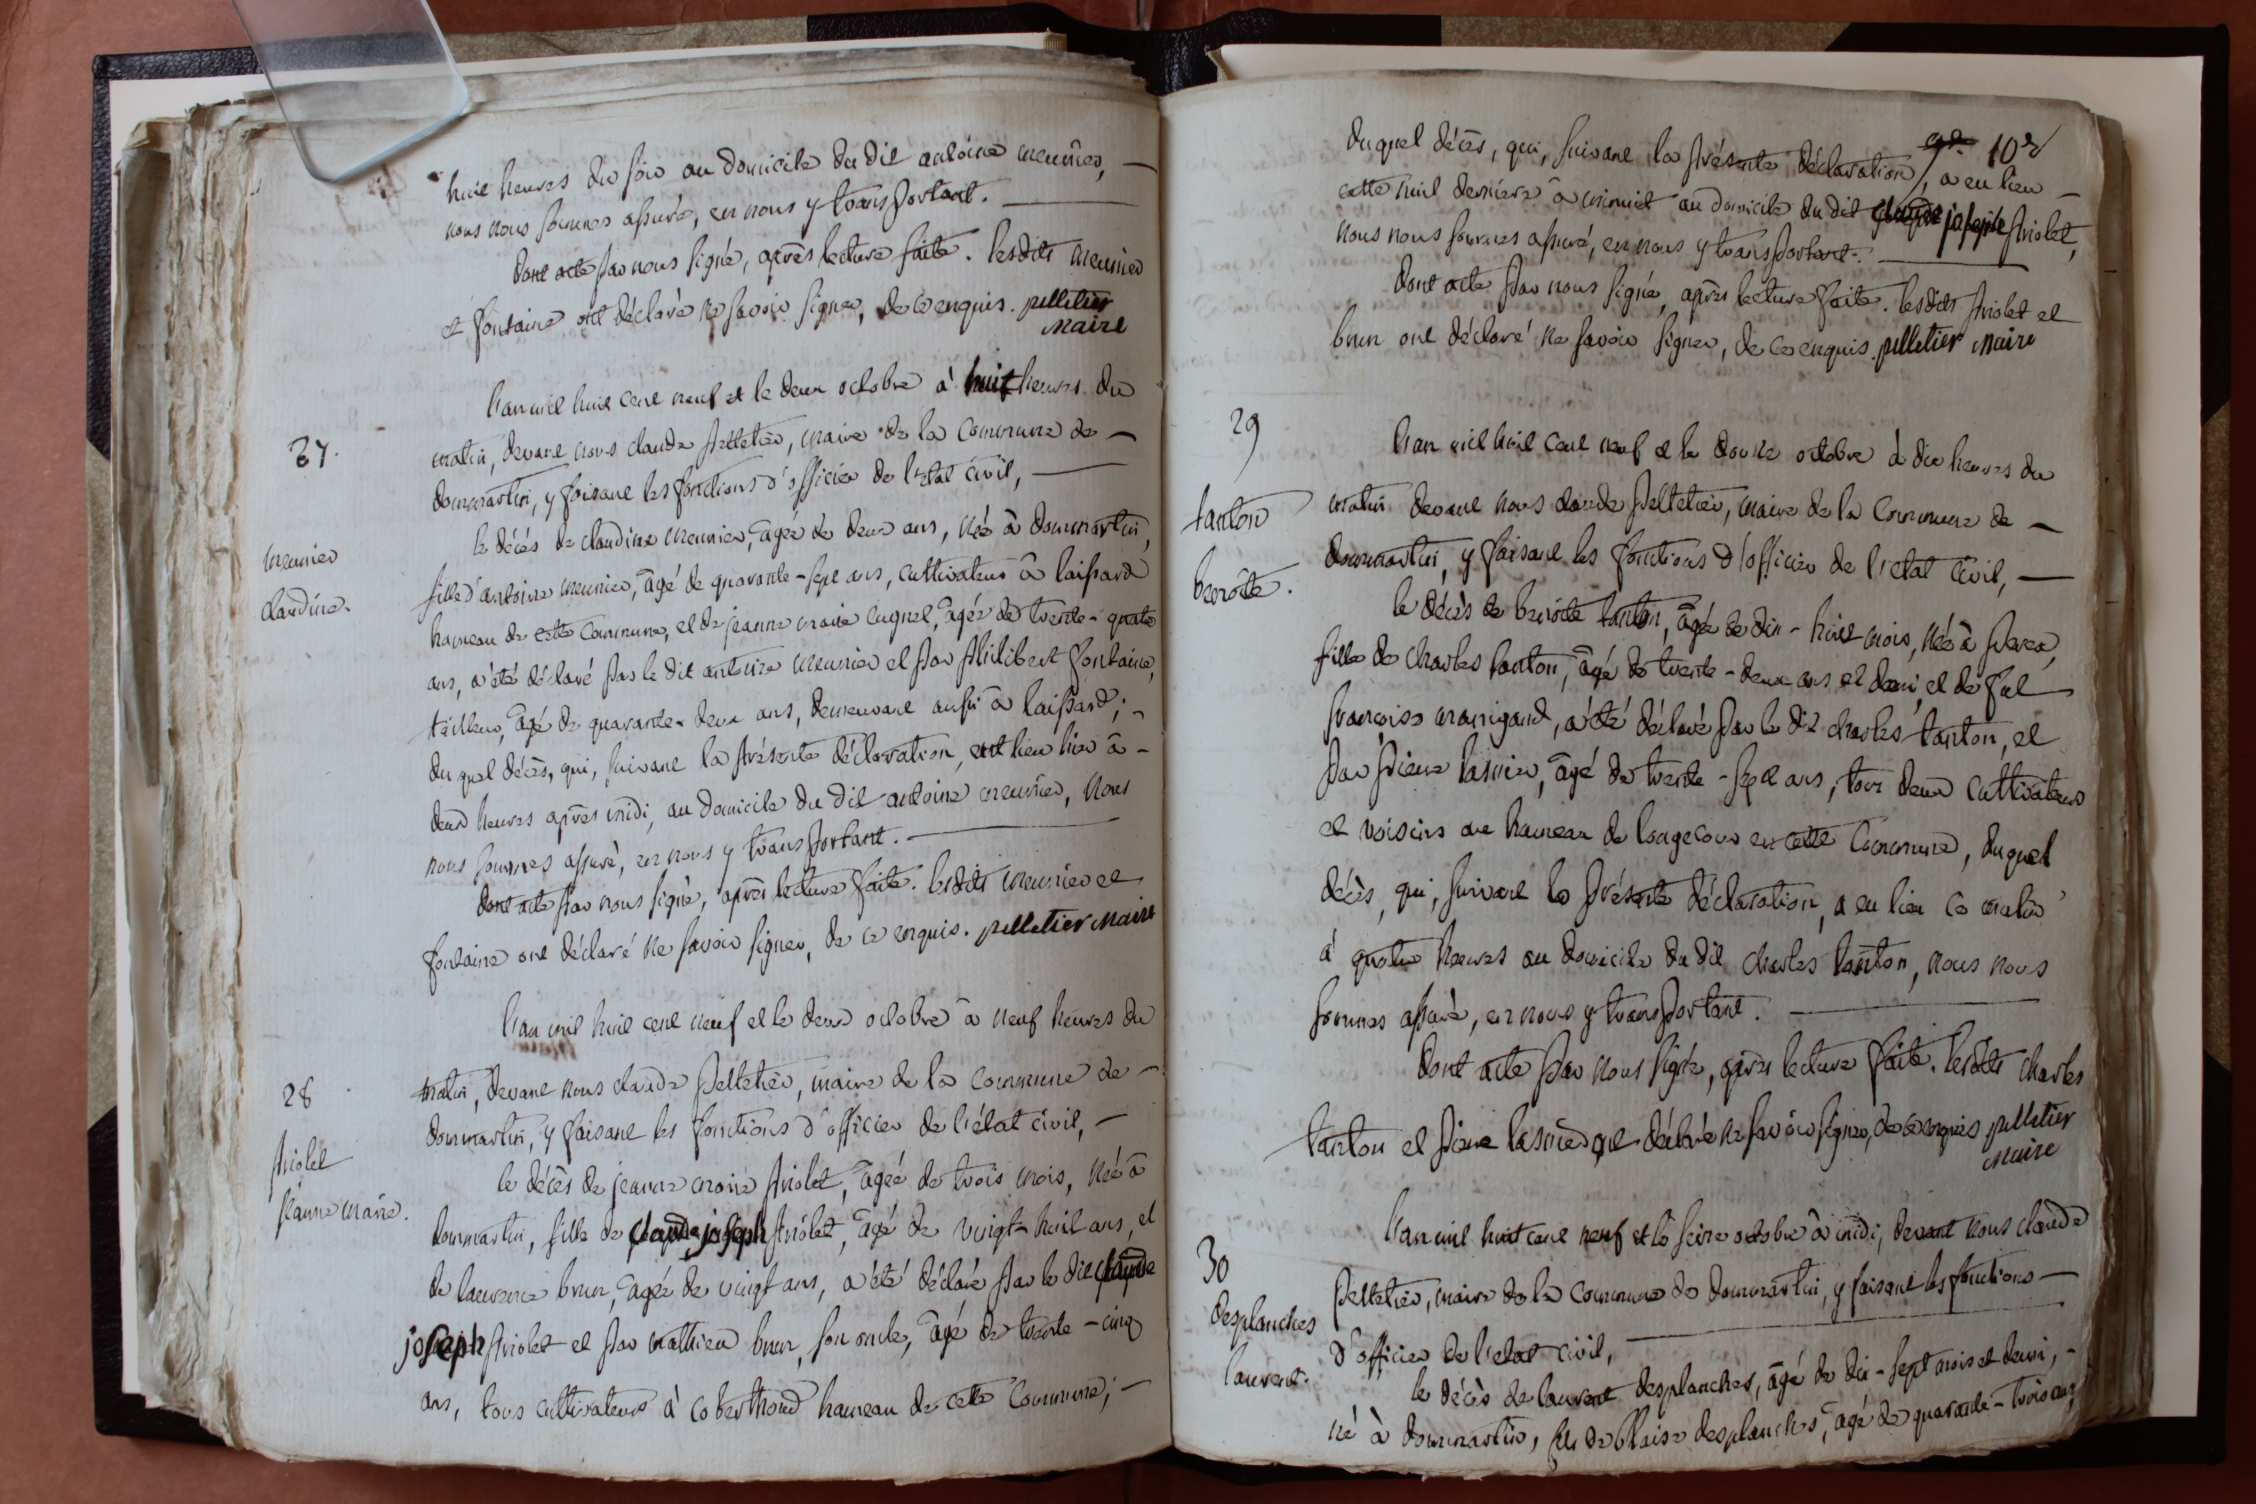 huit heures du soir au domicile du dit antoine meunier, —
nous nous sommes assuré, en nous y transportant. —
dont acte par nous signé, après lecture faite. lesdits meunier
et fontaine ont déclaré ne savoir signer, de ce enquis. pelletier
maire
27.
meunier
claudine.
l'an mil huit cent neuf et le deux octobre à huit heures du
matin, devant nous claude pelletier, maire de la commune de —
dommartin, y faisant les fonctions d'officier de l'état civil, —
le décès de claudine meunier, agée de deux ans, née à dommartin,
fille d'antoine meunier, âgé de quarante-sept ans, cultivateur à laissard
hameau de cette commune, et de jeanne marie cugnet, agée de trente-quatre
ans, a été déclaré par le dit antoine meunier et par philibert fontaine,
tailleur, âgé de quarante-deux ans, demeurant aussi à laissard; -
du quel décès, qui, suivant la présente déclaration, eut lieu hier à -
deux heures après midi, au domicile du dit antoine meunier, nous
nous sommes assuré, en nous y transportant. —
dont acte par nous signé, après lecture faite. lesdits meunier et
fontaine ont déclaré ne savoir signer, de ce enquis. pelletier maire
28
priolet
jeanne marie.
l'an mil huit cent neuf et le deux octobre à neuf heures du
matin, devant nous claude pelletier, maire de la commune de —
dommartin, y faisant les fonctions d'officier de l'état civil, —
le décès de jeanne marie priolet, agée de trois mois, née à
dommartin, fille de claude joseph priolet, agé de vingt-huit ans, et
de laurence brun, agée de vingt ans, a été déclaré par le dit claude
joseph priolet et par mathieu brun, son oncle, âgé de trente-cinq
ans, tous cultivateurs à coberthoud hameau de cette commune; —
10e
duquel décès, qui, suivant la présente déclaration, a eu lieu —
cette nuit dernière à minuit au domicile du dit claude joseph priolet,
nous nous sommes assuré, en nous y transportant. —
dont acte par nous signé, après lecture faite. lesdits priolet et
brun ont déclaré ne savoir signer, de ce enquis. pelletier maire
29
tanton
benoîte.
l'an mil huit cent neuf et le douze octobre à dix heures du
matin devant nous claude pelletier, maire de la commune de —
dommartin, y faisant les fonctions d'officier de l'état civil, —
le décès de benoîte tanton, âgée de dix-huit mois, née à
fille de charles tanton, âgé de trente-deux ans et demi, et de
françoise manigand, a été déclaré par le dit charles tanton, et
par pierre lasnier, âgé de trente-sept ans, tous deux cultivateurs
et voisins au hameau de longecour en cette commune, duquel
décès, qui, suivant la présente déclaration, a eu lieu ce matin
à quatre heures au domicile du dit charles tanton, nous nous
sommes assuré, en nous y transportant. —
dont acte par nous signé, après lecture faite. lesdits charles
tanton et pierre lasnier ont déclaré ne savoir signer, de ce enquis pelletier
maire
30
desplanches
laurent.
l'an mil huit cent neuf et le seize octobre à midi, devant nous claude
pelletier, maire de la commune de dommartin, y faisant les fonctions —
d'officier de l'etat civil, —
le décès de laurent desplanches, âgé de dix-sept mois et demi, -
né à dommartin, fils de blaise desplanches, agé de quarante-trois ans,